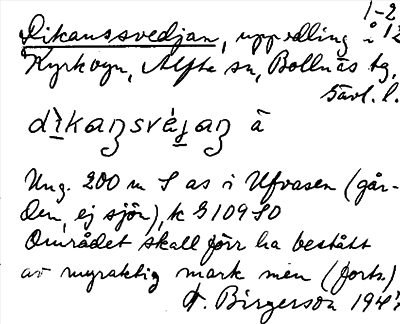 1-2
Dikanssvedjan, uppodling i 12
Kyrkbyn, Alfta sn, Bollnäs tg,
Gävl. l.
dikaŋsvéjaŋ å
Ung. 200 m S as i Ufvasen (går-
den, ej sjön), k G 109 SO
Området skall förr ha bestått
av myraktig mark men (forts.)
F. Birgerson 194